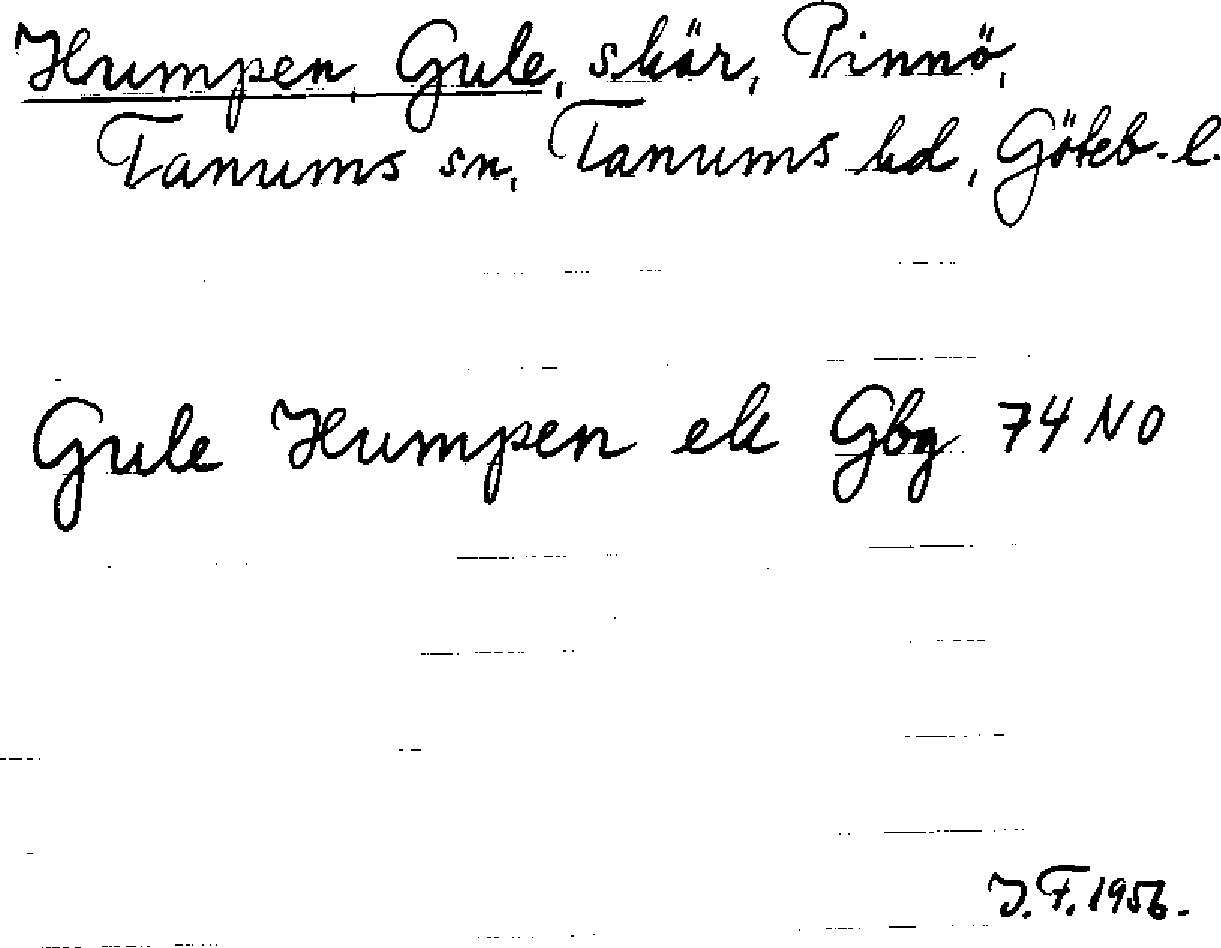 Humpen, Gule, skär, Pinnö,
Tanums sn, Tanums hd, Göteb.-l.
Gule Humpen ek Gbg 74 NO
J.F. 1956.